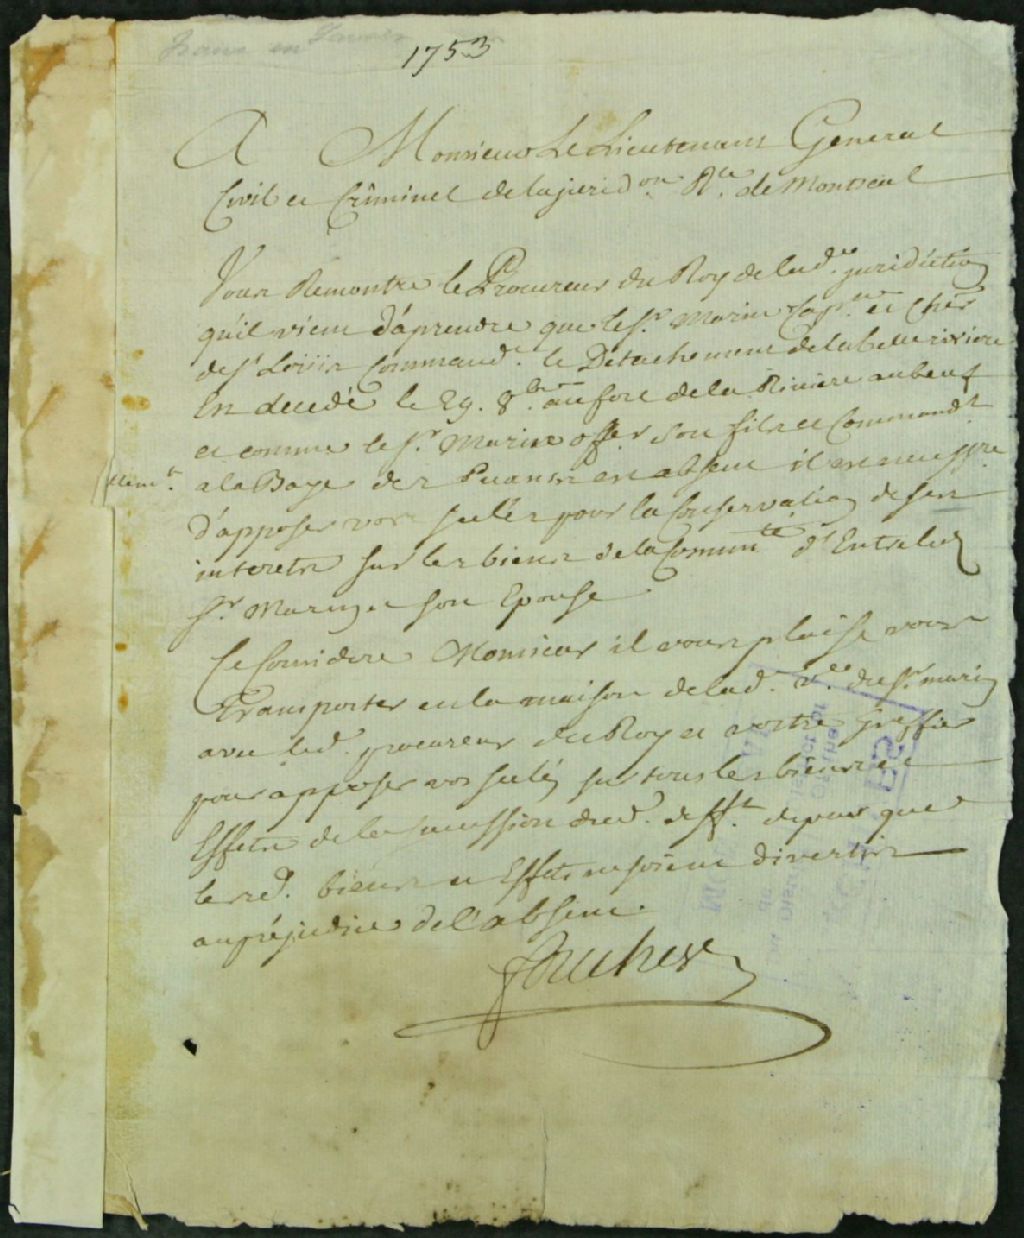 1753
A Monsieur Le Lieutenant General
Civil et Criminel de la jurid.on R.le de Montreal
Vous Remontre le Procureur du Roy de lad.e juridiction
qu'il vient d'aprendre que le S.r Marin Cap.ne et Cher
de S.t Loüis Command.t le Détachement de la belle riviere
est decedé le 29. 8.bre au fort de la Riviere au beuf
et comme le S.r Marin off.er son fils et Command.t
a la Baye des Puants est absent il est necess.re
d'apposer vos scellés pour la Conservation de ses
interets sur les biens de la Commun.té d'Entre led
S.r Marin et son Epouse
Ce Consideré Monsieur il vous plaise vous
Transporter en la maison de lad. v.e du S.r Marin
avec led. procureur du Roy et votre greffier
pour apposer vos scelés sur tous les biens et
Effets de la succession dud. deff.t depeur que
lesd. biens et Effets ne soient divertis
au préjudice de l'absent.
Foucher